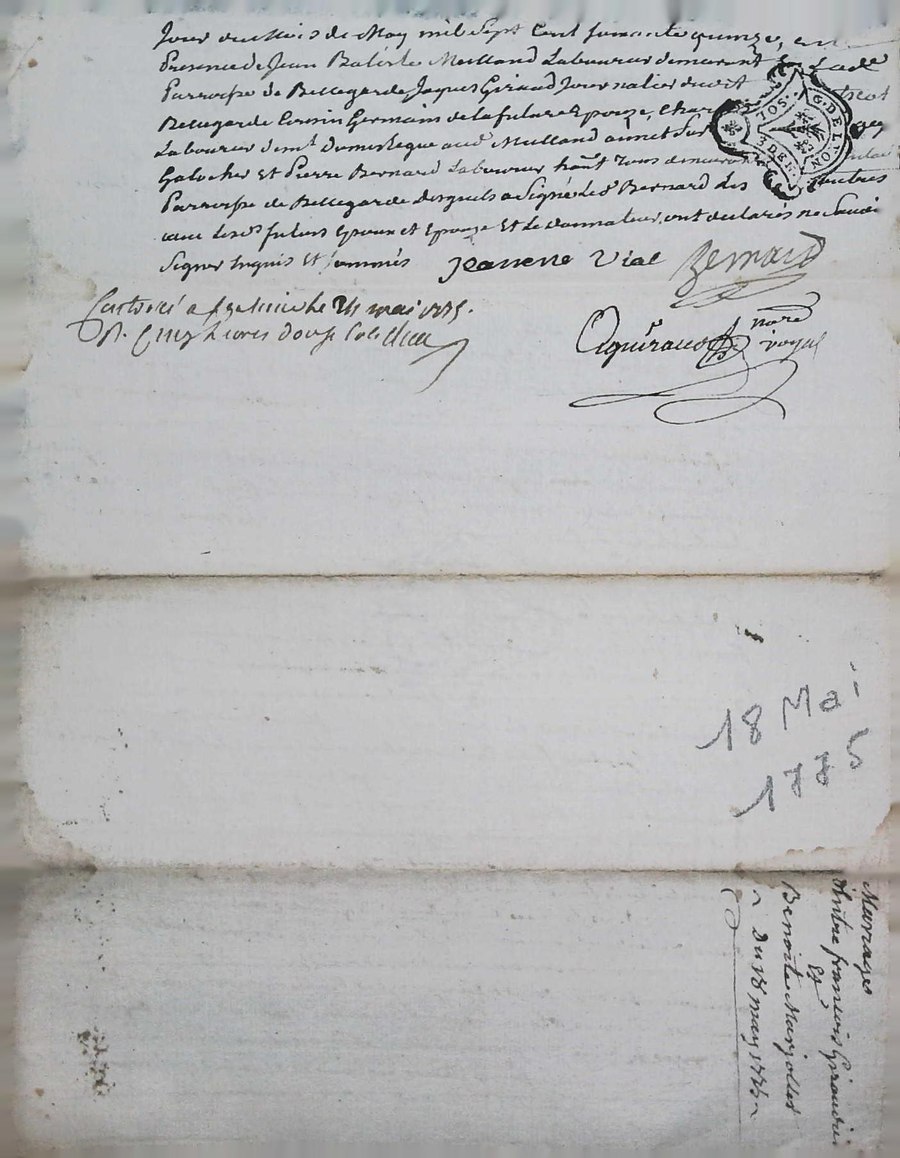 Jour du Mois de May mil Sept Cent soixante quinze, en
Presence de Jean Batiste Meilland Laboureur demeurant
Parroisse de Bellegarde Jaques Giraud Journalier du dit
Bellegarde Cousin Germain de la future Epouze,
Laboureur Domestique aud Meilland annet
Galocher Et Pierre Bernard Laboureur habt Tous demeurant
Parroisse de Bellegarde desquels a Signé le Sr Bernard Les autres
avec lesd futurs Epoux et Epouze Et Le donnateur, ont declarés ne Savoir
Signer Enquis Et sommés Jeanene Vial Bernard
a le 24 mai 1775.
R. Cinq livres douze sols
nore
royal
G. DE LYON
3 DEN.
18 Mai
1775
Marriages
Entre francois Giraudie
Et
Benoite Marjolles
Du 18 may 1775